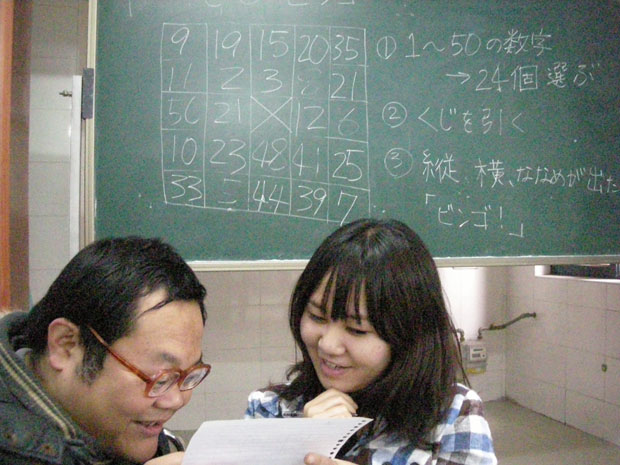 9 19 15 20 35
11 2 3 21
50 21 × 12 6
10 23 48 41 25
33 5 44 39 7
① 1〜50の数字
→24個選ぶ
② くじを引く
③ 縦、横、ななめが出た
「ビンゴ!」